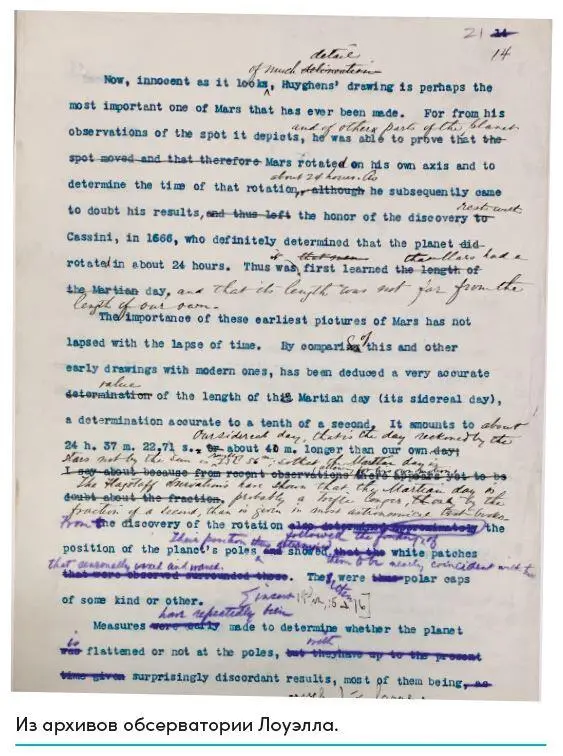 21 14
14
detail
of much delineation
Now, innocent as it looks, Huyghens' drawing is perhaps the
most important one of Mars that has ever been made. For from his
and of other parts of the planet
observations of the spot it depicts, he was able to prove that the
spot moved and that therefore Mars rotated on his own axis and to
about 24 hours. As
determine the time of that rotation, although he subsequently came
rests with
to doubt his results, and thus left the honor of the discovery to
Cassini, in 1666, who definitely determined that the planet did
it that men that Mars had a
rotated in about 24 hours. Thus was first learned the length of
the Martian day, and that its length was not far from the
length of our own.
The importance of these earliest pictures of Mars has not
lapsed with the lapse of time. By comparing of this and other
early drawings with modern ones, has been deduced a very accurate
value
determination of the length of this Martian day (its sidereal day),
a determination accurate to a tenth of a second. It amounts to about
Our sidereal day, that is the day reckoned by the
24 h. 37 m. 22.71 s., or about 40 m. longer than our own day
stars not by the sun is so that the Martian day
I say about because from recent observations there appears yet to be
The Flagstaff observations have shown that the Martian day is
doubt about the fraction, probably a trifle longer by the
fraction of a second, than is given in most astronomical text-books
From the discovery of the rotation also determined approximately the
followed the finding of
position of the planet's poles and showed that the white patches
their position them to be nearly coincident with
that seasonally waxed and waned.
that were observed surrounded these. They were thus polar caps
of some kind or other.
have repeatedly been
Measures were early made to determine whether the planet
is with
was flattened or not at the poles, but they have up to the present
time given surprisingly discordant results, most of them being, as
Из архивов обсерватории Лоуэлла.